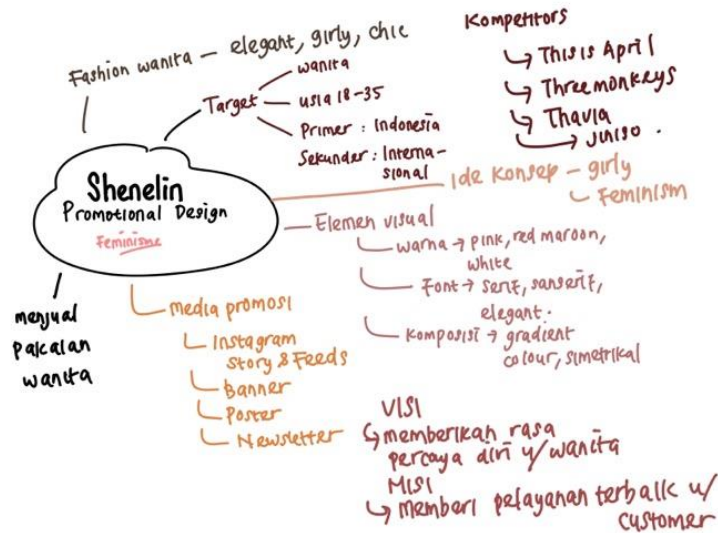 Fashion wanita - elegant, girly, chic
Target
wanita
usia 18-35
Primer : Indonesia
Sekunder : Interna-
sional
Kompetitors
This is April
Threemonkeys
Thavia
Juniso .
Shenelin
Promotional Design
Feminisme
Ide Konsep - girly
Feminism
Elemen visual
warna → pink, red maroon,
white
Font → serif, sanserif,
elegant.
Komposisi → gradient
colour, simetrikal
menjual
pakaian
wanita
media promosi
Instagram
Story & Feeds
Banner
Poster
Newsletter
VISI
memberikan rasa
percaya diri u/ wanita
MISI
memberi pelayanan terbaik u/
customer